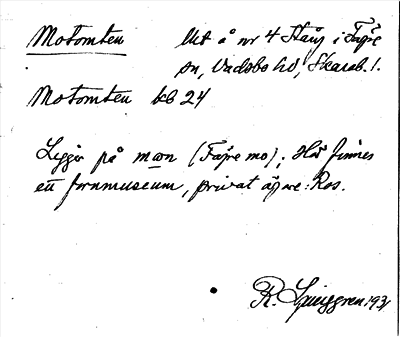 Motomten Ut å nr 4 Stång i Fägre
sn, Vadsbo hd, Skarab. l.
Motomten kb 24
Ligger på mon (Fägre mo); Här finnes
ett fornmuseum, privat ägare: Ros.
R. Ljunggren 193